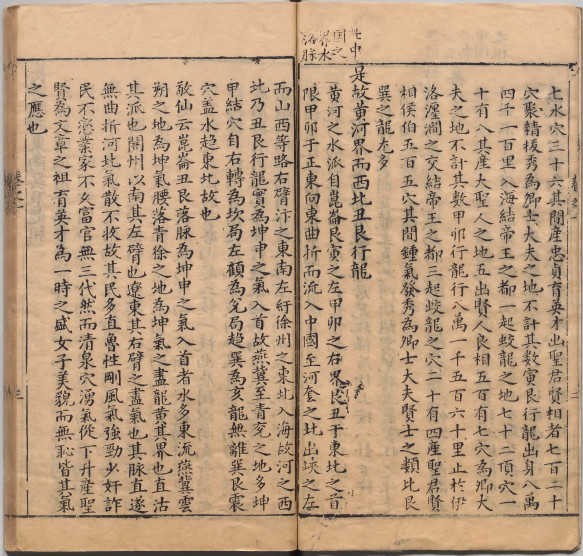 七水穴三十六其間產忠貞育英才出聖君賢相者七百二十
穴聚精拔秀為鄉士大夫之地不計其數寅艮行龍出身八萬
四千一百里入海結帝王之都一起蛟龍之地七十二項穴一
十有八其產大聖人之地五出賢人良相五百有七穴為鄉大
夫之地不計其數甲卯行龍行八萬一千五百六十里止於伊
洛瀍澗之交結帝王之都三起蛟龍之穴二十有四產聖君賢
相侯伯五百五穴其間鍾氣發秀為鄉士大夫賢士之類比艮
巽之龍尤多
世中
國之
界水
洛脉
是故黃河界而西北丑艮行龍
黃河之水派自崑崙艮寅之左甲卯之右界艮丑于東北之首
限甲卯于正東向東曲折而流入中國至河套之北出峽之左
而山西等路右臂汴之東南左紆徐州之東北入海故河之西
北乃丑艮行龍實為坤申之氣入首故燕冀至青兗之地多坤
甲結穴自右轉為坎局左顧為兌局趨巽為亥龍無離巽艮震
穴盖水趨東北故也
敖仙云崑崙丑艮落脉為坤申之氣入首者水多東流燕冀雲
朔之地為坤氣腰落青徐之地為坤氣之盡龍黃其界也直沽
其派也關州以南其左臂也遼東其右臂之盡氣也其脉直遂
無曲折河北氣散不收故其民多直魯性剛風氣強勁少奸詐
民不毫業家不久富官無三代然而清泉穴湧氣從下升產聖
賢為文章之祖育英才為一時之盛女子美貌而無恥皆其氣
之應也